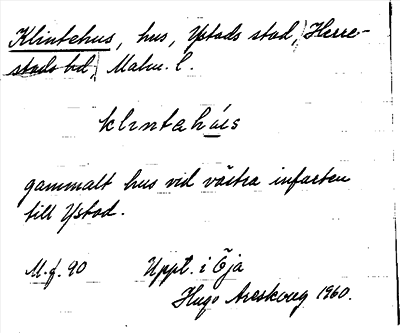 Klintehus, hus, Ystads stad, Herre-
stads hd, Malm. l.
klintahús
gammalt hus vid västra infarten
till Ystad.
M.f. 90 Uppt. i Öja
Hugo Areskoug 1960.